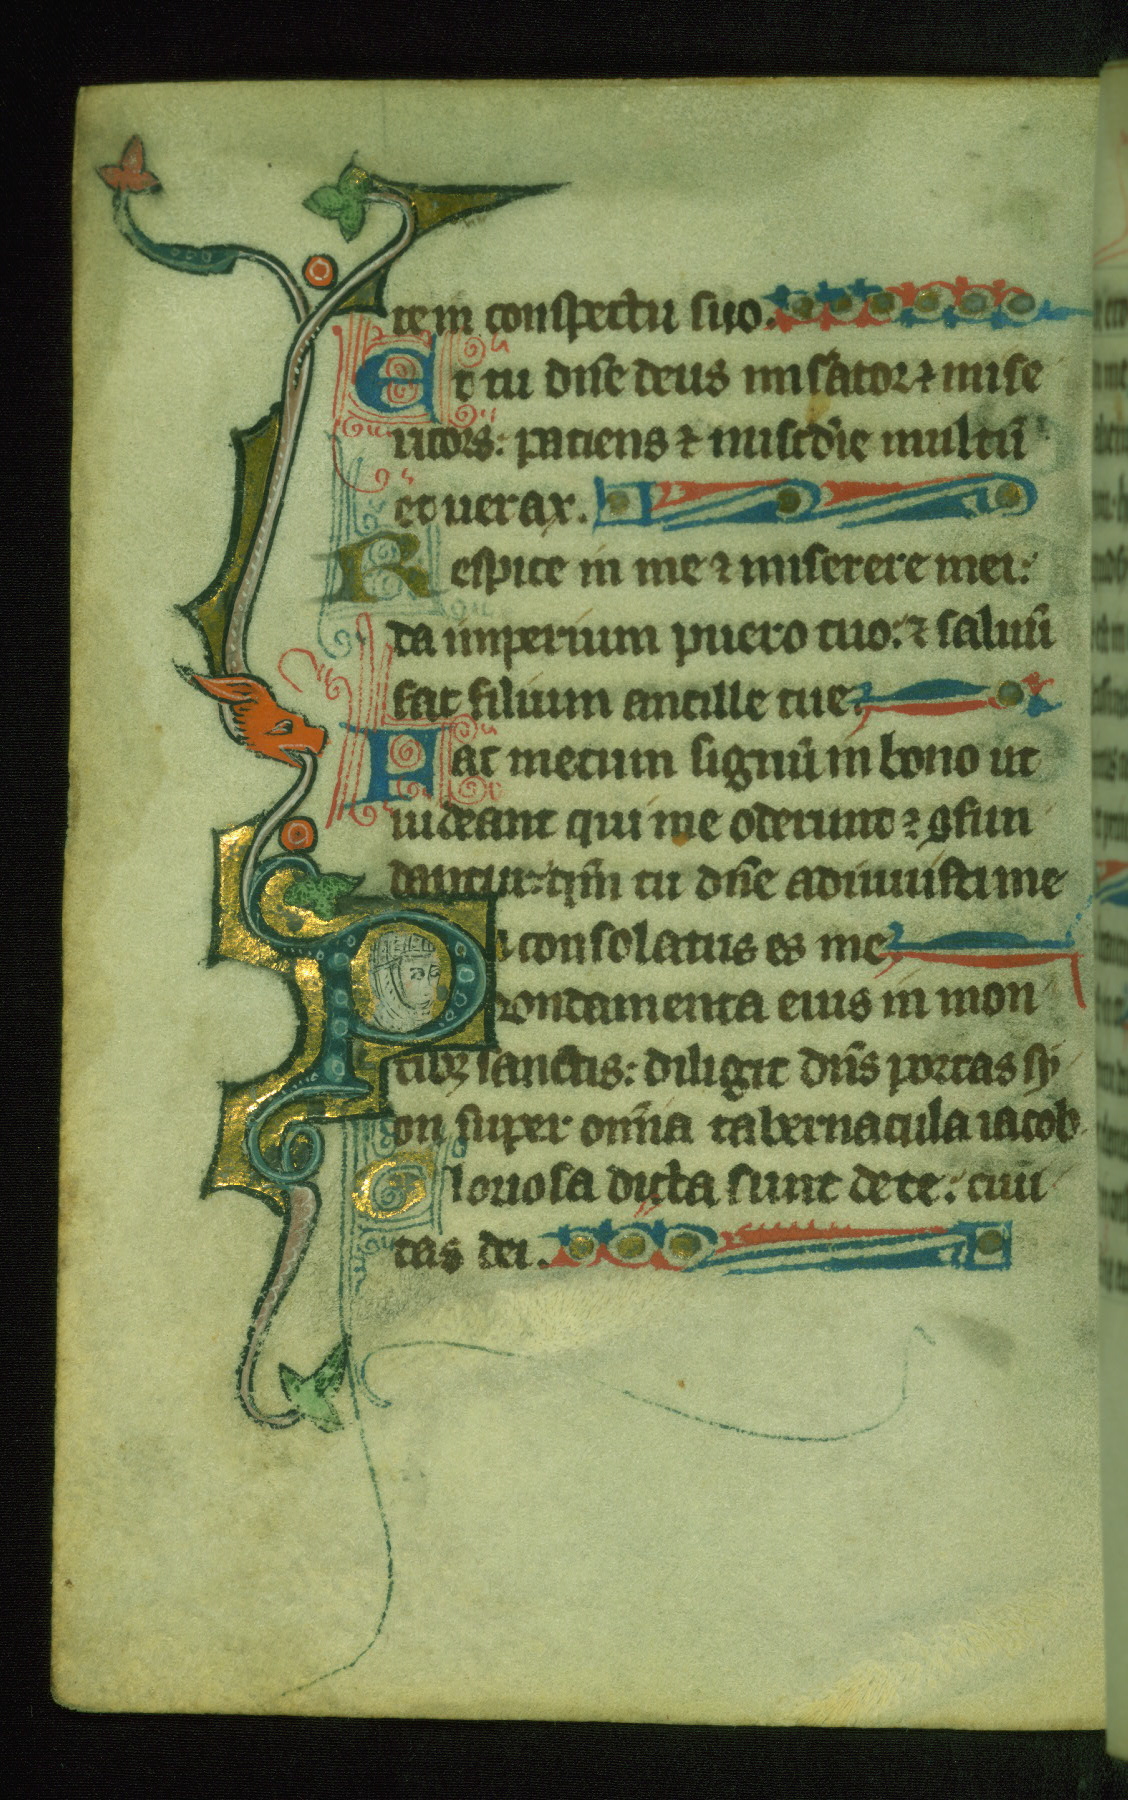 tem conspectu suo.
Et tu dñe deus misator ⁊ mise
ricors: patiens ⁊ miscd'ie multũ
et uerax.
Respice in me ⁊ miserere mei:
da imperium puero tuo: ⁊ saluũ
fac filium ancille tue.
Fac mecum signũ in bono ut
uideant qui me oderunt ⁊ ꝯfun
dantur: qm̃ tu dñe adiuuisti me
⁊ consolatus es me.
Fondamenta eius in mon
tibꝫ sanctis: diligit dñs portas sy
on super om̃ia tabernacula iacob.
Gloriosa dicta sunt de te: ciui
tas dei.